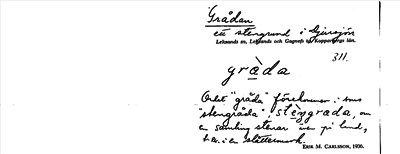 Grådan
ett stengrund i Djursjön
Leksands sn, Leksands och Gagnefs tg, Kopparbergs län.
311.
gràda
Ordet "gråda" förekommer i sms
"stengråda", stèngrada, om
en samling stenar även på land,
t. ex. i en slåttermark.
ERIK M. CARLSSON, 1930.